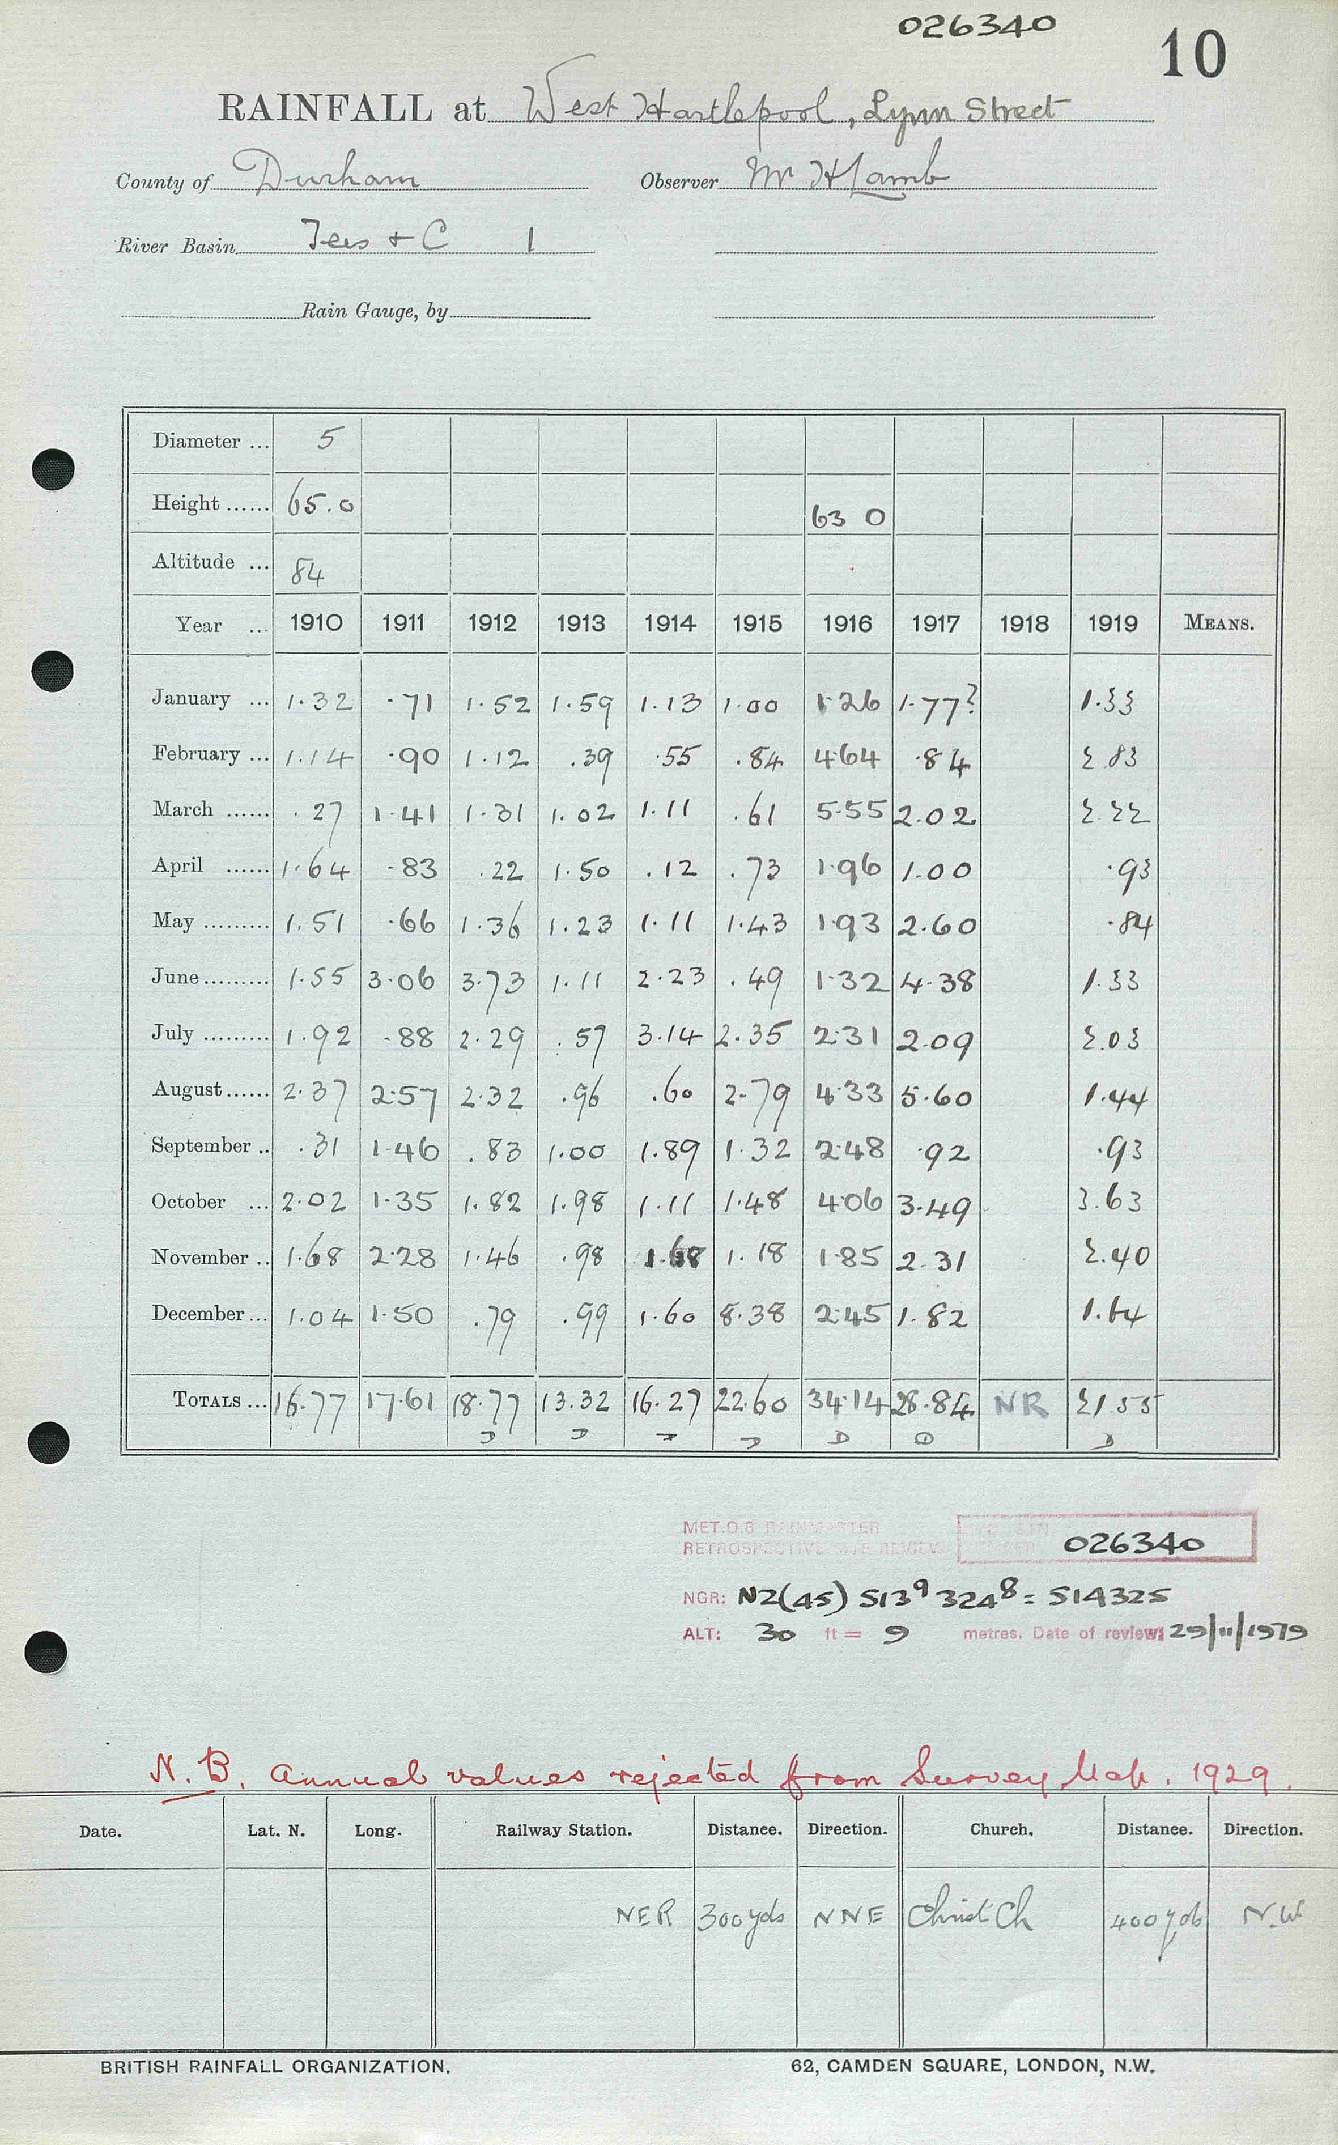 026340
10
RAINFALL at West Hartlepool, Lynn Street
County of Durham Observer Mr H Lamb
River Basin Tees & C 1
Rain Gauge, by
Diameter ... 5
Height ...... 65.0 63 0
Altitude ... 84
Year ... 1910 1911 1912 1913 1914 1915 1916 1917 1918 1919 MEANS.
January ... 1.32 .71 1.52 1.59 1.13 1.00 1.26 1.77? 1.33
February ... 1.14 .90 1.12 .39 .55 .84 4.64 .84 2.83
March ...... .27 1.41 1.31 1.02 1.11 .61 5.55 2.02 2.22
April ...... 1.64 .83 .22 1.50 .12 .73 1.96 1.00 .93
May ......... 1.51 .66 1.36 1.23 1.11 1.43 1.93 2.60 .84
June ......... 1.55 3.06 3.73 1.11 2.23 .49 1.32 4.38 1.33
July ......... 1.92 .88 2.29 .57 3.14 2.35 2.31 2.09 2.03
August ...... 2.37 2.57 2.32 .96 .60 2.79 4.33 5.60 1.44
September .. .31 1.46 .83 1.00 1.89 1.32 2.48 .92 .93
October ... 2.02 1.35 1.82 1.98 1.11 1.48 4.06 3.49 3.63
November .. 1.68 2.28 1.46 .98 1.68 1.18 1.85 2.31 2.40
December ... 1.04 1.50 .79 .99 1.60 8.38 2.45 1.82 1.64
TOTALS ... 16.77 17.61 18.77 13.32 16.27 22.60 34.14 28.84 NR 21.55
D D D D D D D
MET.O.8 RAINMASTER
RETROSPECTIVE SITE REVIEW 026340
NGR: NZ(45) 513⁹ 324⁸ = 514325
ALT: 30 ft = 9 metres. Date of review: 29/11/1979
N.B. Annual values rejected from Survey Map. 1929.
Date. Lat. N. Long. Railway Station. Distance. Direction. Church. Distance. Direction.
NER 300 yds NNE Christ Ch 400 yds N.W
BRITISH RAINFALL ORGANIZATION. 62, CAMDEN SQUARE, LONDON, N.W.